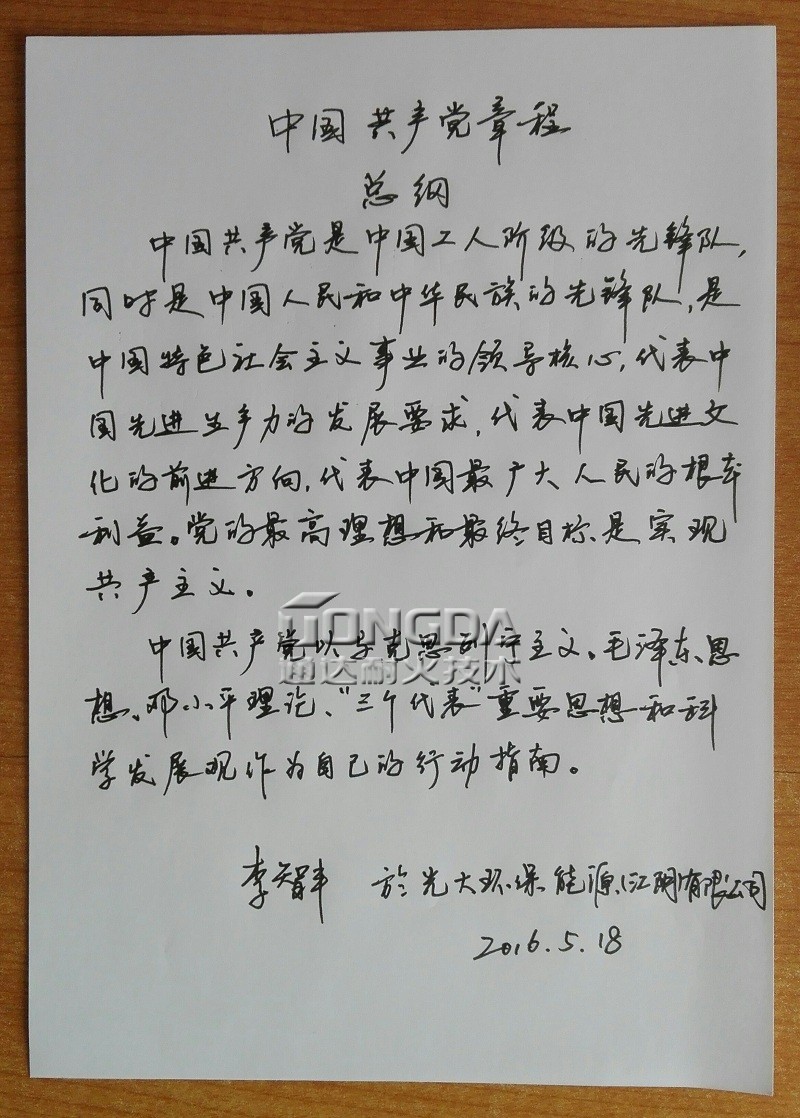 中国共产党章程
总纲
中国共产党是中国工人阶级的先锋队,
同时是中国人民和中华民族的先锋队,是
中国特色社会主义事业的领导核心,代表中
国先进生产力的发展要求,代表中国先进文
化的前进方向,代表中国最广大人民的根本
利益。党的最高理想和最终目标是实现
共产主义。
TONGDA
中国共产党以马克思列宁主义、毛泽东思
通达耐火技术
想、邓小平理论、“三个代表”重要思想和科
学发展观作为自己的行动指南。
李智丰 於光大环保能源(江阴)有限公司
2016.5.18